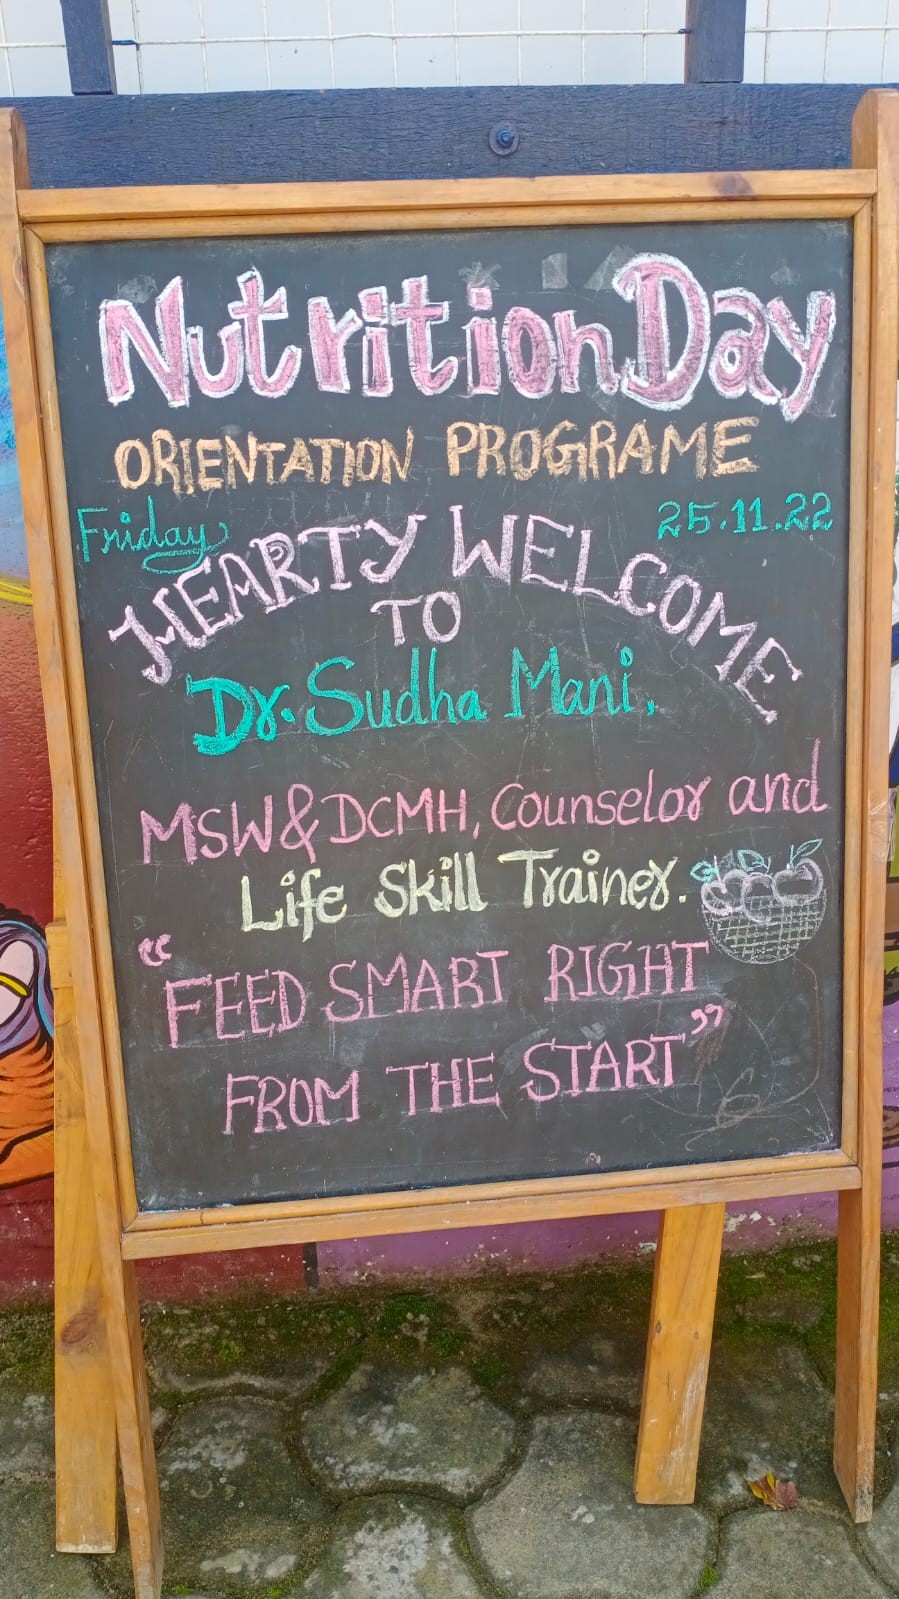 Nutrition Day
ORIENTATION PROGRAME
Friday 25.11.22
HEARTY WELCOME
TO
Dr. Sudha Mani,
MSW & DCMH, Counselor and
Life Skill Trainer.
“FEED SMART RIGHT
FROM THE START”